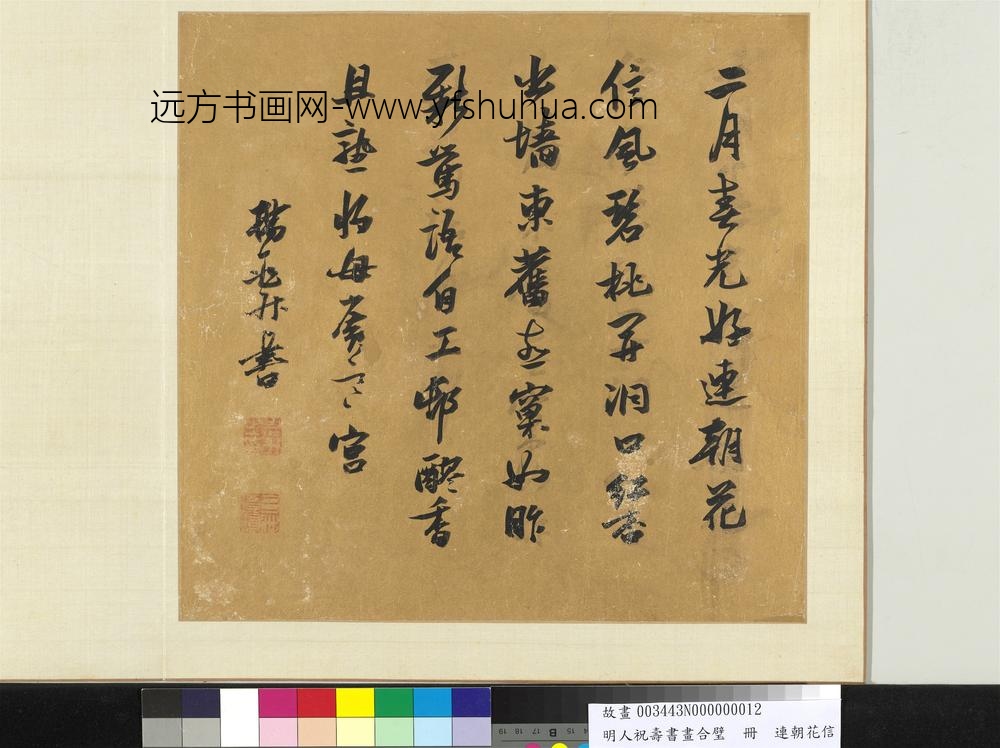 二月春光好連朝花
信風碧桃開洞口紅杏
出墻東舊壘窠如昨
新鶯語自工郫醪香
且熟將母
宮
楊兆升書
远方书画网-www.yfshuhua.com
故畫 003443N000000012
明人祝壽書畫合璧　冊　連朝花信